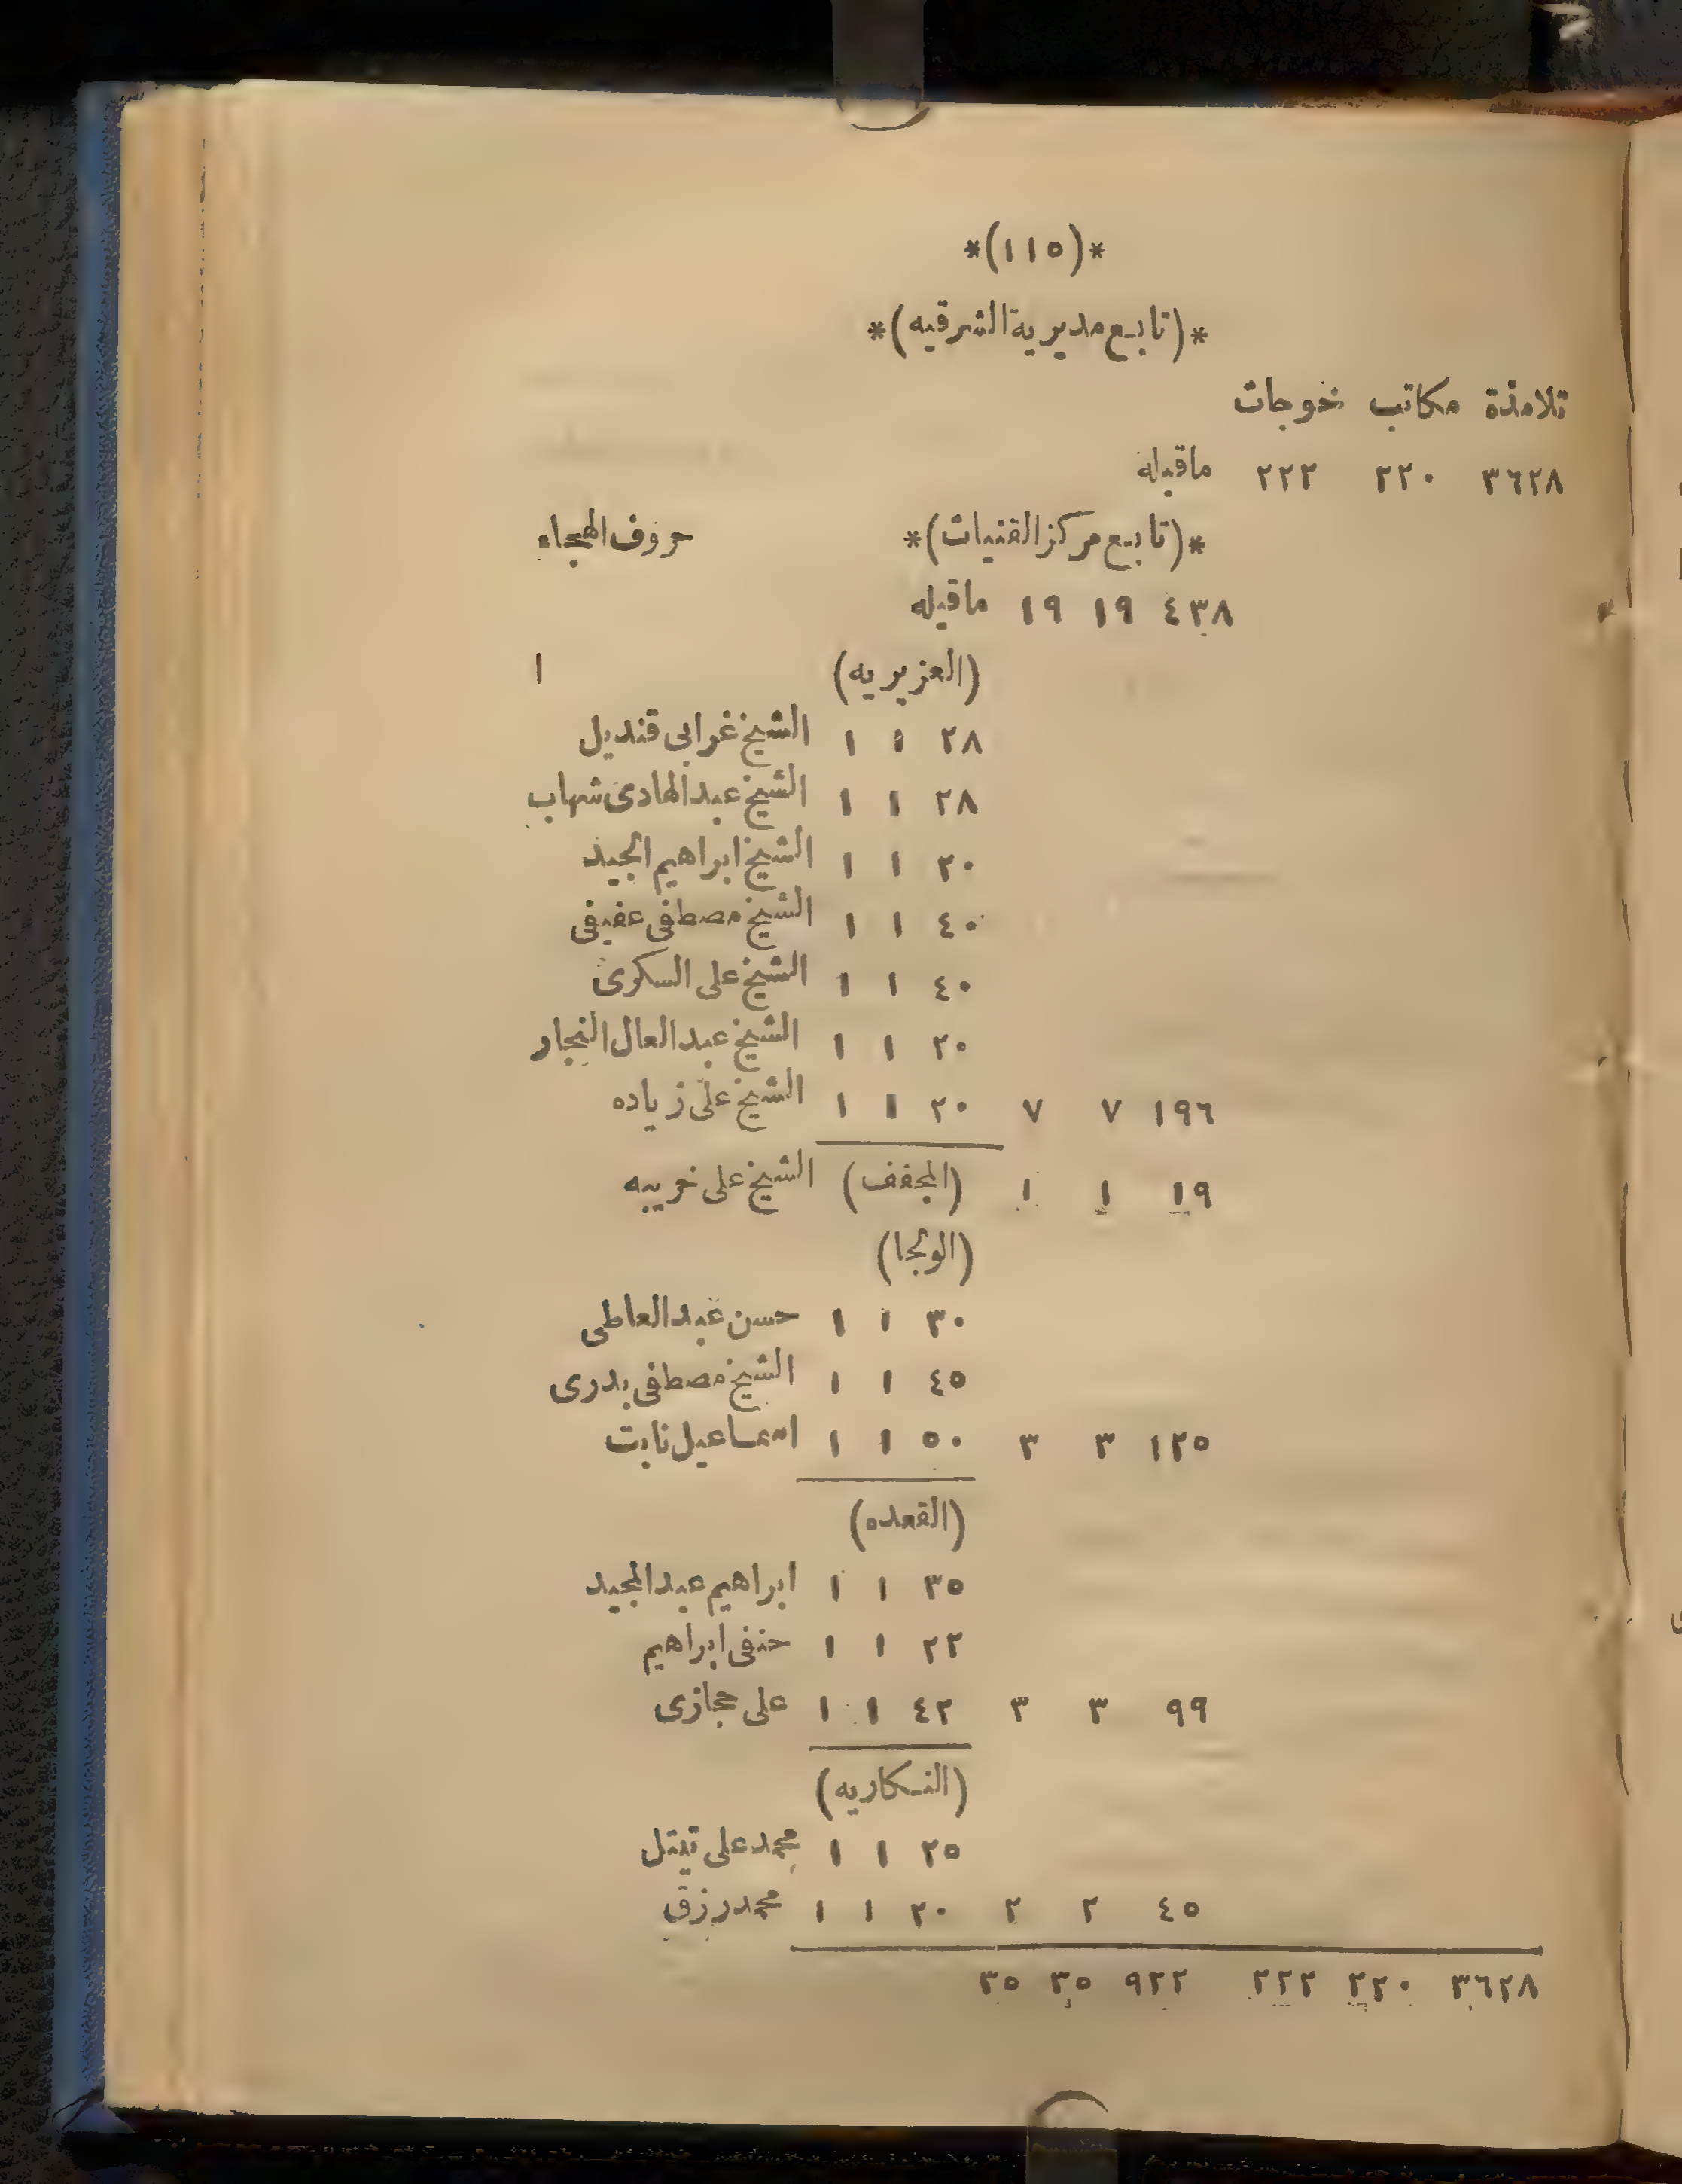 *(١١٥)*
*(تابع مديرية الشرقيه)*
تلامذة مكاتب خوجات
٣٦٢٨ ٢٢٠ ٢٢٢ ماقبله
*(تابع مركز القنيات)* حروف الهجاء
٤٣٨ ١٩ ١٩ ماقبله
(العزيزيه) ١
٢٨ ١ ١ الشيخ غرابى قنديل
٢٨ ١ ١ الشيخ عبد الهادى شهاب
٢٠ ١ ١ الشيخ ابراهيم الجيد
٤٠ ١ ١ الشيخ مصطفى عفيفى
٤٠ ١ ١ الشيخ على السكرى
٢٠ ١ ١ الشيخ عبد العال النجار
١٩٦ ٧ ٧ ٢٠ ١ ١ الشيخ على زياده
١٩ ١ ١ (المجفف) الشيخ على خريبه
(الولجا)
٣٠ ١ ١ حسن عبد العاطى
٤٥ ١ ١ الشيخ مصطفى بدرى
١٢٥ ٣ ٣ ٥٠ ١ ١ اسماعيل نابت
(القعده)
٣٥ ١ ١ ابراهيم عبد المجيد
٢٢ ١ ١ حنفى ابراهيم
٩٩ ٣ ٣ ٤٢ ١ ١ على حجازى
(النكاريه)
٢٥ ١ ١ محمد على تيتل
٤٥ ٢ ٢ ٢٠ ١ ١ محمد رزق
٣٦٢٨ ٢٢٠ ٢٢٢ ٩٢٢ ٣٥ ٣٥